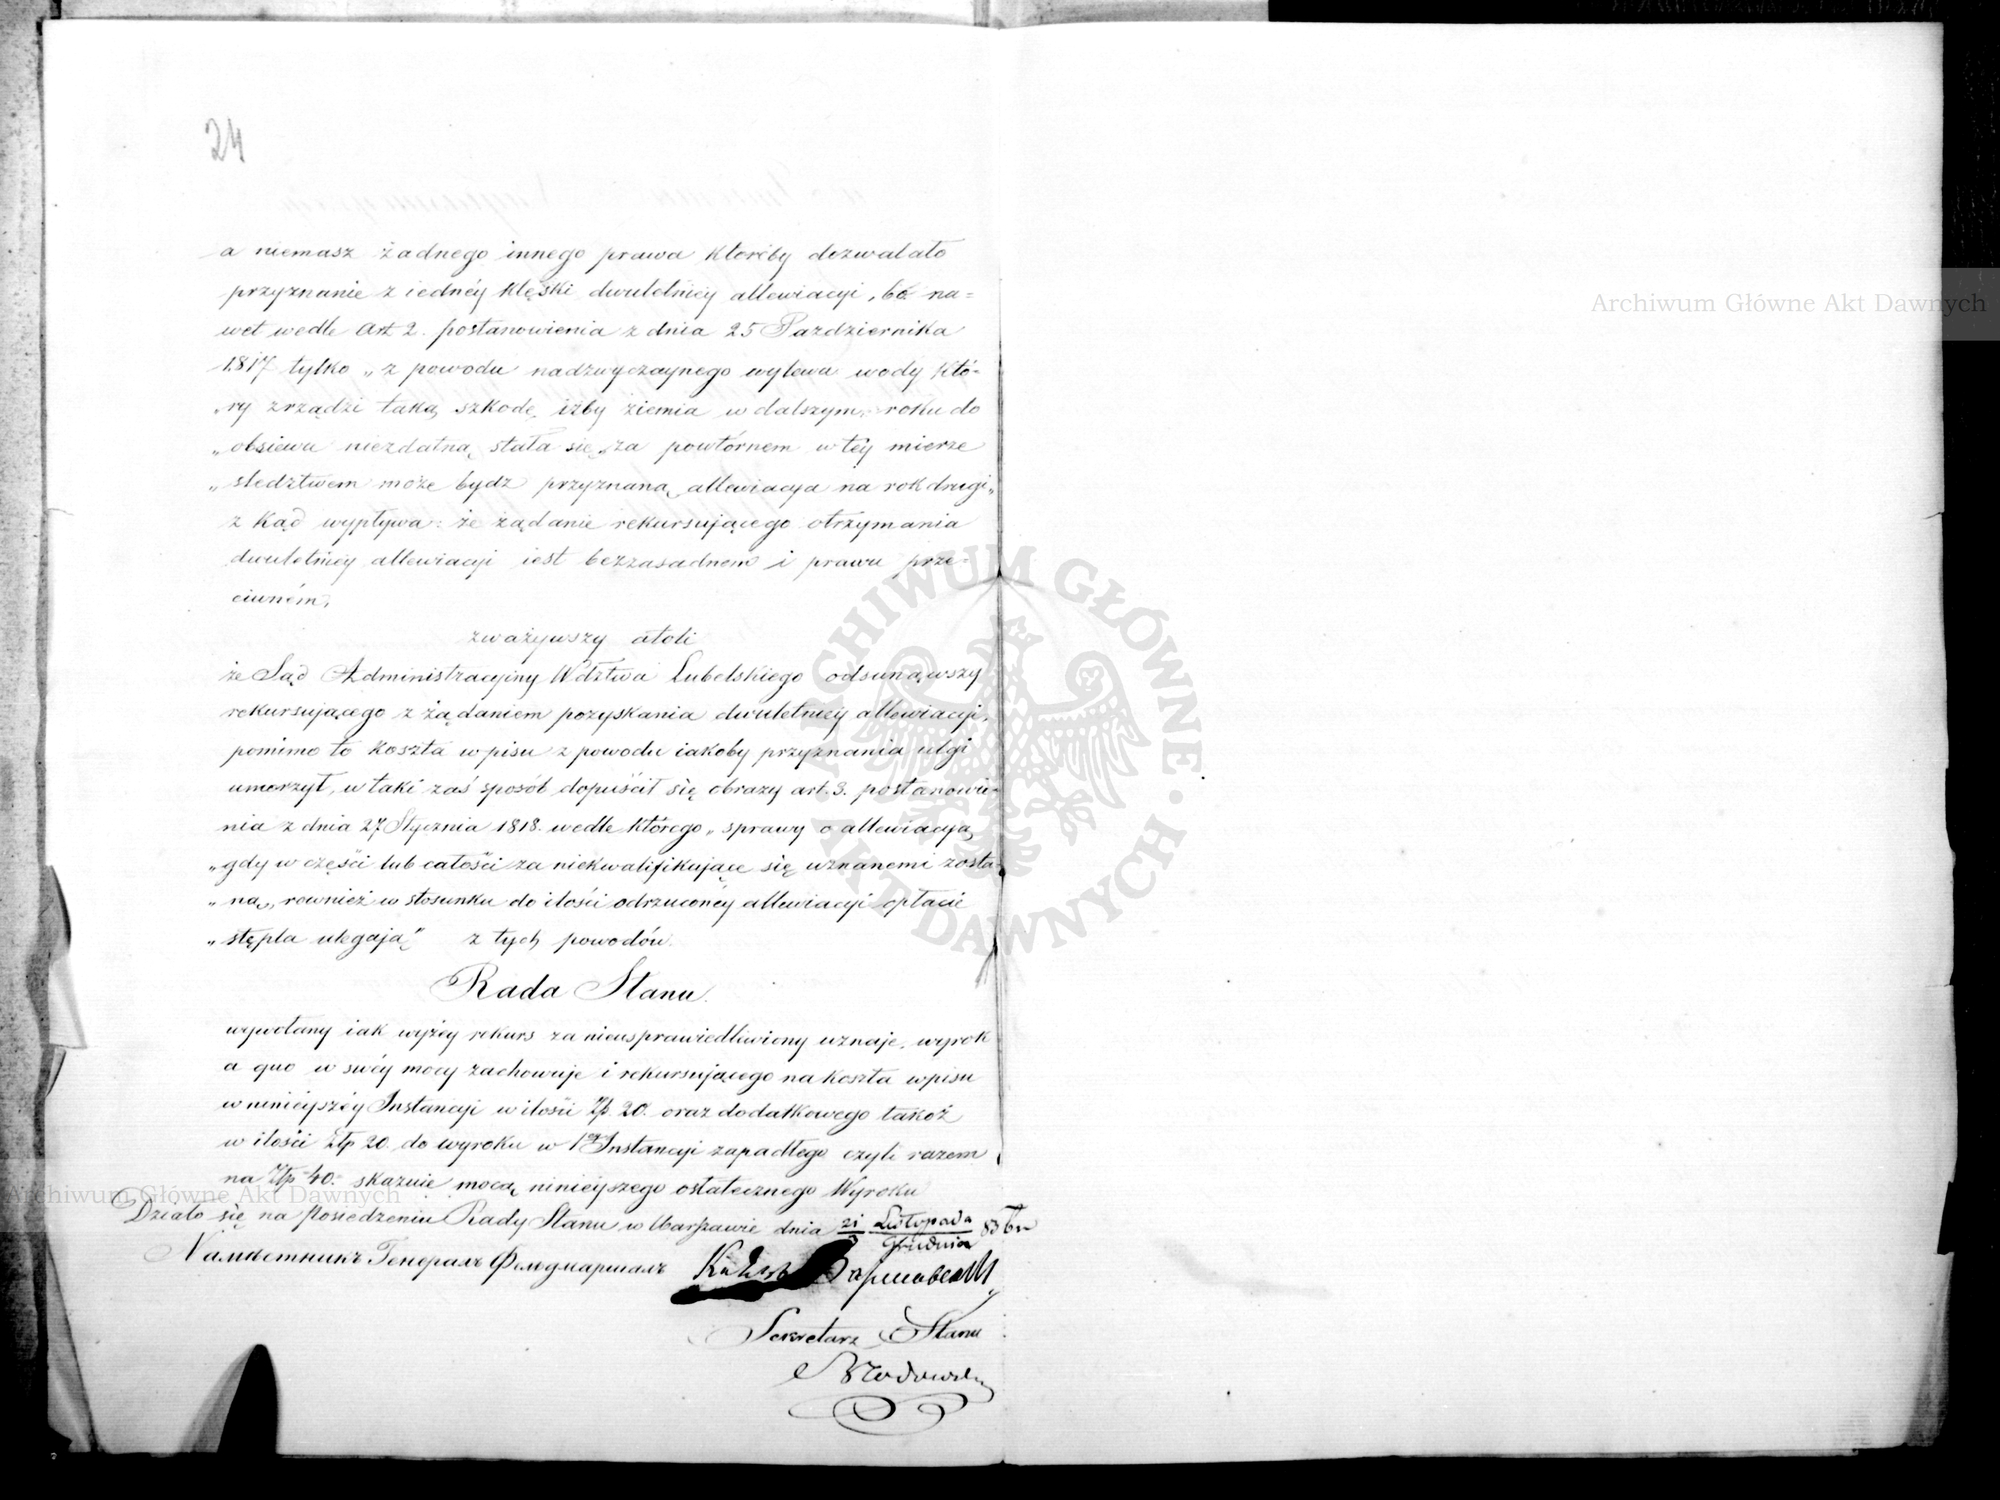 24
a niemasz żadnego innego prawa któreby dozwalało
przyznanie z iednéy klęski dwuletniéy allewiacyi, bo na=
wet wedle Art 2. postanowienia z dnia 25 Pazdziernika
1817 tylko „z powodu nadzwyczaynego wylewu wody któ-
„ry zrządzi taką szkodę iżby ziemia w dalszym roku do
„obsiewu niezdatną stała się, za powtórnem w téy mierze
„sledztwem może bydz przyznaną allewiacya na rok drugi„
z kąd wypływa: że żądanie rekursującego otrzymania
dwuletniéy allewiacyi iest bezzasadnem i prawu prze-
ciwném,
zważywszy atoli
że Sąd Administracyiny Wdztwa Lubelskiego odsunąwszy
rekursującego z żądaniem pozyskania dwuletniéy allewiacyi,
pomimo to koszta wpisu z powodu iakoby przyznania ulgi
umorzył, w taki zaś sposób dopuścił się obrazy art. 3. postanowie-
nia z dnia 27 Stycznia 1818. wedle którego „sprawy o allewiacyą
„gdy w części lub całości za niekwalifikujące się uznanemi zosta-
„ną, rownież w stosunku do ilości odrzuconéy allewiacyi opłacie
„stępla ulegają" z tych powodów.
Rada Stanu.
wywołany iak wyżéy rekurs za nieusprawiedliwiony uznaje, wyrok
a quo w swéy mocy zachowuje i rekursującego na koszta wpisu
w ninieyszéy Instancyi w ilości Złp 20. oraz dodatkowego takoż
w ilości Złp 20. do wyroku w 1éy Instancyi zapadłego czyli razem
na Złp 40.- skazuie mocą ninieyszego ostatecznego Wyroku
Działo się na Posiedzeniu Rady Stanu w Warszawie dnia 21/3 Listopada/Grudnia
Намѣстникъ Генералъ Фельдмаршалъ Князь Варшавскій
Sekretarz Stanu
Archiwum Główne Akt Dawnych
Archiwum Główne Akt Dawnych
ARCHIWUM GŁÓWNE · AKT DAWNYCH ·